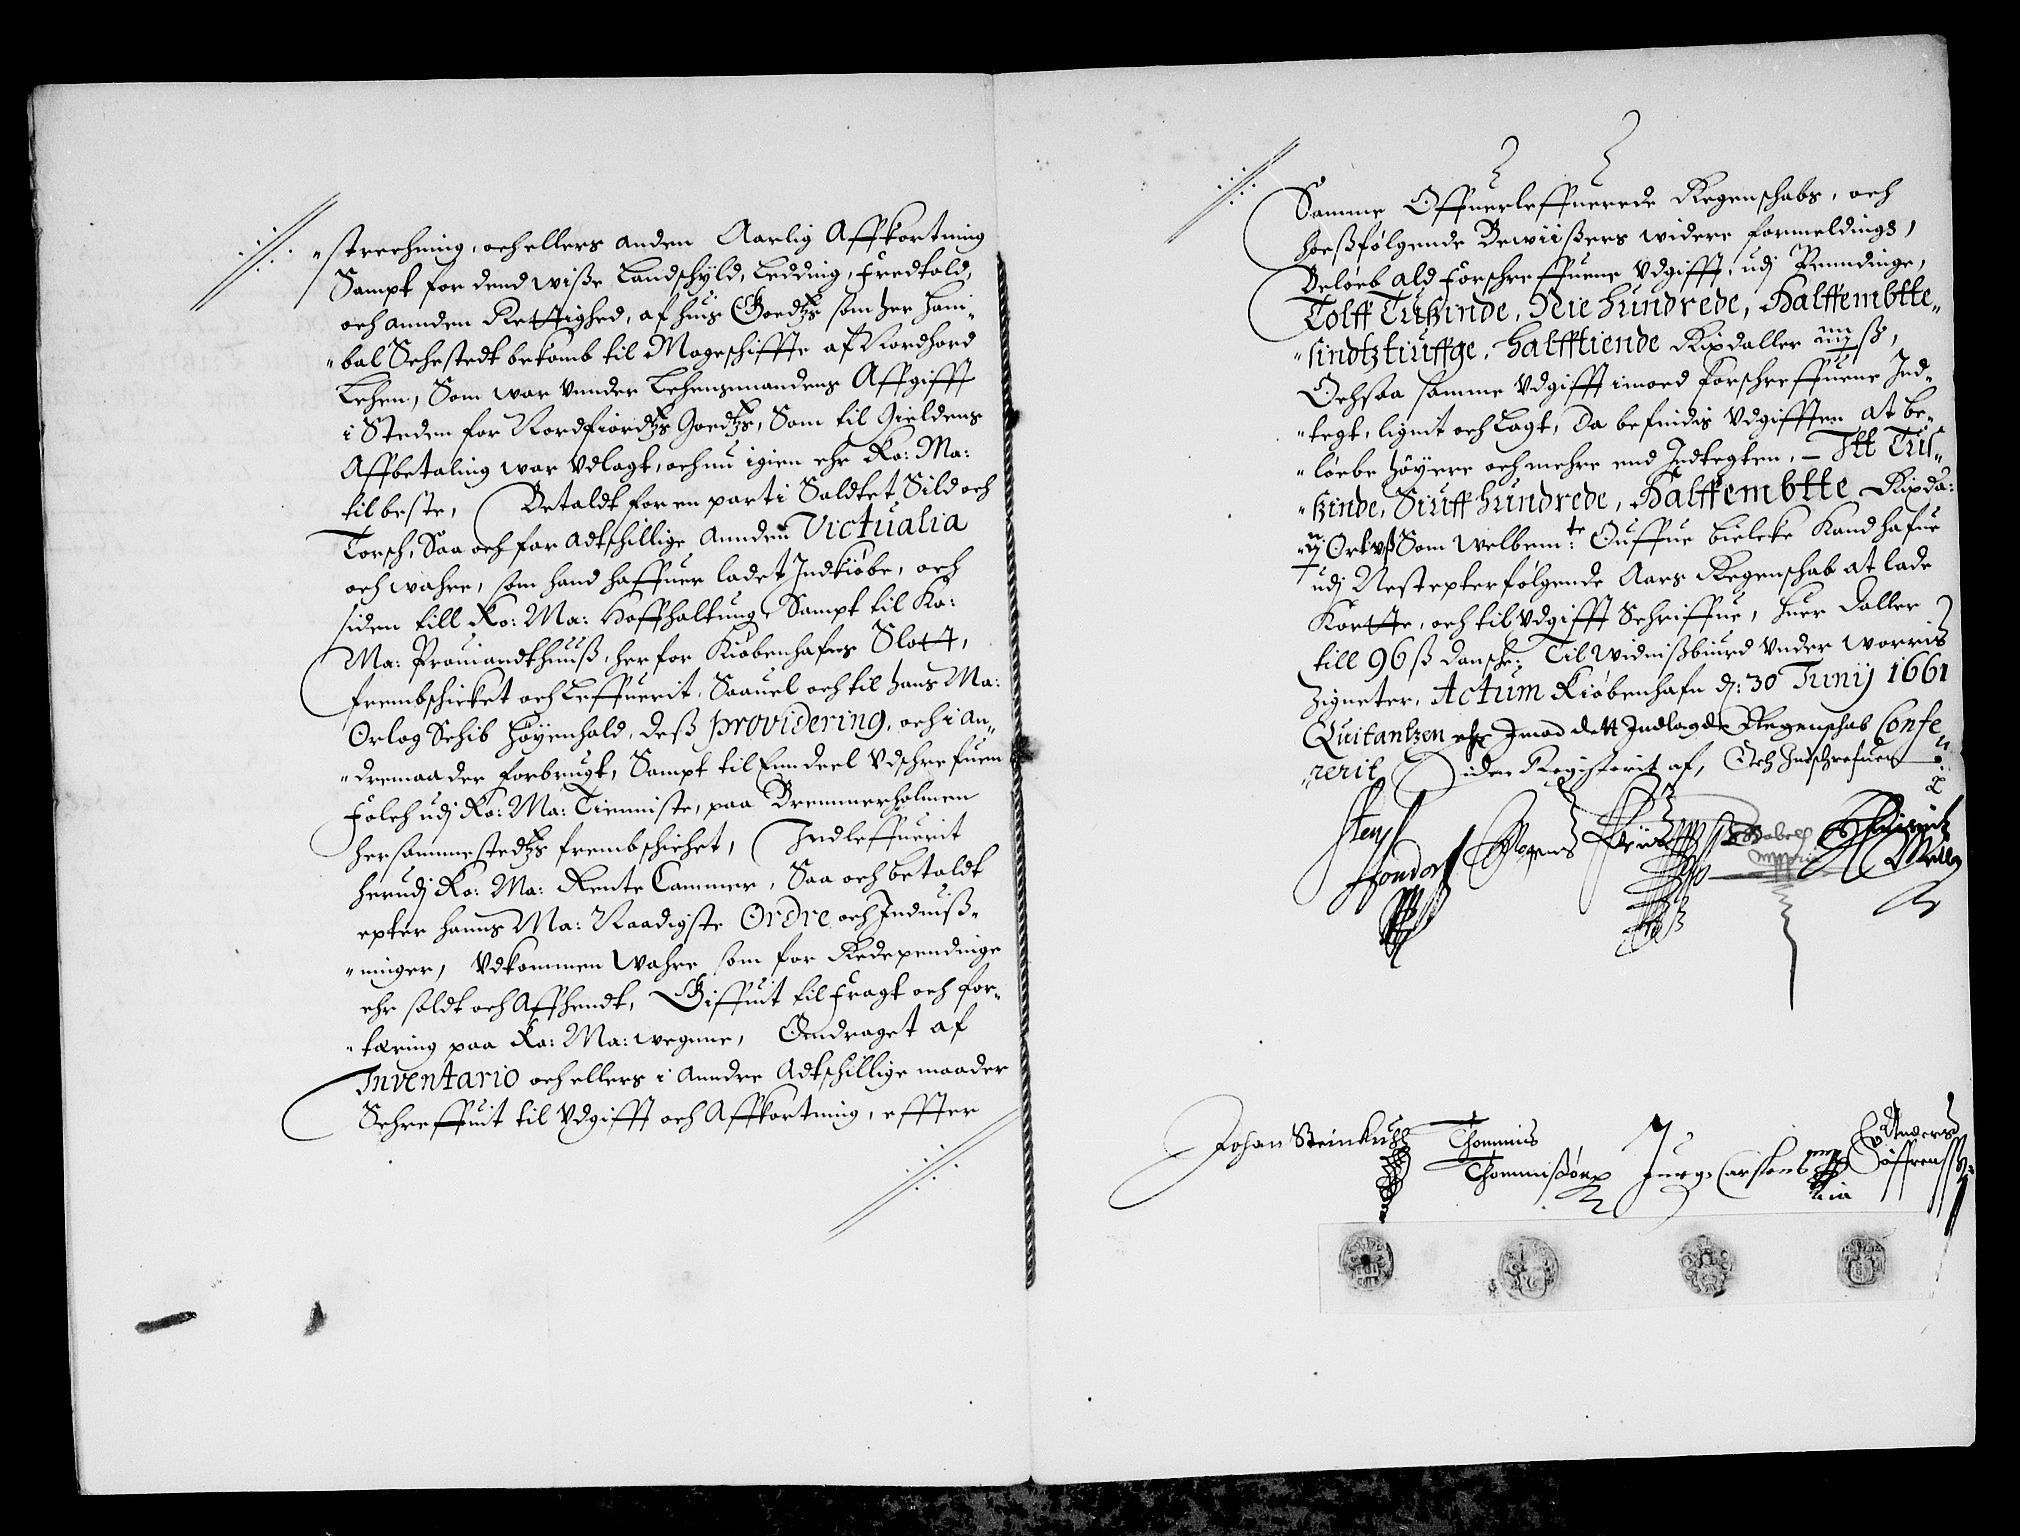 strechning, och ellers anden Aarlig Affkortning
Sampt for dend wiße Landschyld, Ledding, Fredtold,
och annden Rettighed, af huis Goedtzs som her Hani-
bal Sehestedt bekomb til Mageschiffte af Nordhord
Lehen, Som war vnnder Lehensmandens Affgifft
i Steden for Nordfiordtzs Goedtzs, Som til Gieldens
Affbetaling war vdlagt, och nu igien ehr Ko: Ma:
til beste, Betaldt for en parti Saldtet Sild och
Torsch, Saa och for adtschillige annden Victualia
och wahre, som hand haffuer ladet Indkiøbe, och
siden till Ko: Ma: Hoffholtung, Sampt til Ko:
Ma: Prouiandthuuß, her for Kiøbenhafns Slott,
frembschicket och Leffuerit, Saauel och til hans Ma:
Orlog Schib Høyenhald, deß providering, och i an-
dremaader forbrugt, Sampt til Een deel vdschrefuen
Folch udj Ko: Ma: Tienniste, paa Bremmerholmen
hersammestedtzs frembschichet, Indleffuerit
herudj Ko: Ma: Rente Cammer, Saa och betaldt
epter hanns Ma: Naadigste Ordre och Indwiß-
ninger, vdkommen Wahre som for Redepenndinge
ehr soldt och Affhendt, Giffuit til Fragt och for-
tæring paa Ko: Ma: wegnne, Omdraget af
Inventario och ellers i anndre adtschillige maader
Schreffuit til vdgifft och Affkortning, effter
Samme Offuerleffuerede Regenschabs, och
hoeßfølgende Bewiißers widere formeldings,
Beløeb ald forschreffuene vdgifft, udj Penndinge,
Tolff Tußinde, Nie hundrede, Halffembtte-
sindtztiuffge, halfftiende Rixdaller ß,
Ochsaa samme vdgifft imoed forschreffuene Ind-
tegt, lignit och Lagt, Da befindis vdgifften at be-
løebe høyere och mehre end Indtegten, Itt Tu-
ßinde, Siuff hundrede, Halffembtte Rixda:
Ort ß Som Welbemte: Ouffue Bielcke Kand hafue
udj Nestepterfølgende Aars Regenschab at lade
Kortte, och til vdgifft Schriffue, huer Daller
till 96 ß Danske: Til Widnißbiurd vnder worris
Zigneter, Actum Kiøbenhafn d: 30 Junij 1661
Quitantzen ehr Imod dett Indlagde Regenschab Confe-
rerit Siden Registerit af, Och Indschrefuen
Sten
Hondorf Mogens
Müller
Johan Steinkuhl Thommis
Thommißøn Jurg: Carstens Anders